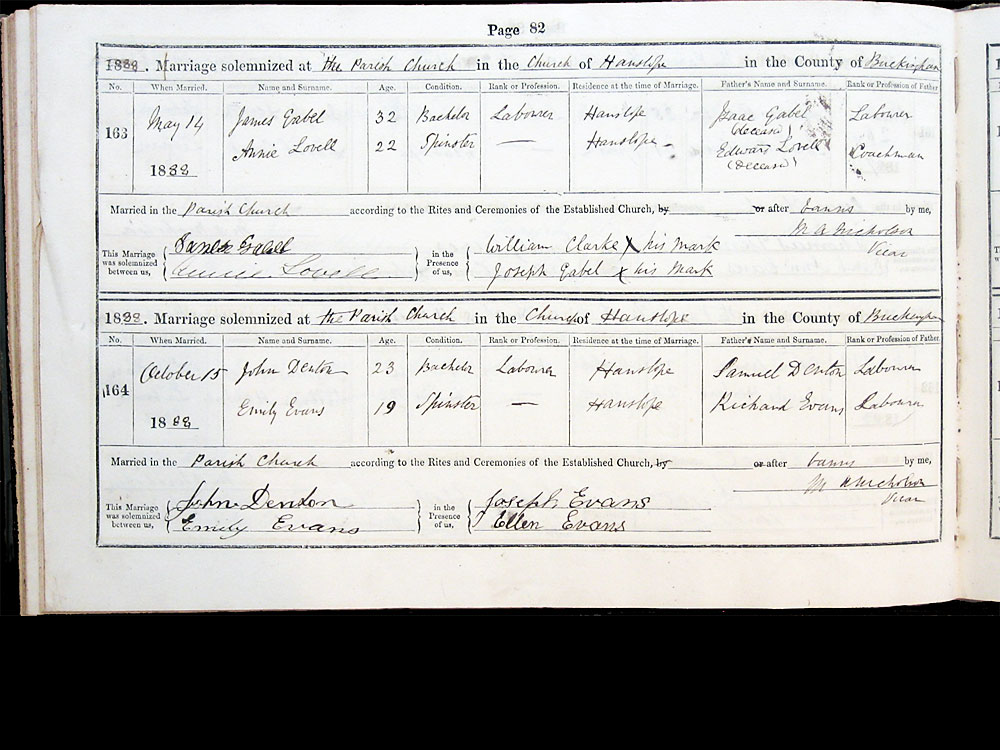 Page 82
1888. Marriage solemnized at the Parish Church in the Church of Hanslope in the County of Buckingham
No. When Married. Name and Surname. Age. Condition. Rank or Profession. Residence at the time of Marriage. Father's Name and Surname. Rank or Profession of Father.
163 May 14 1888 James Gabel 32 Bachelor Labourer Hanslope Isaac Gabel (deceased) Labourer
Annie Lovell 22 Spinster — Hanslope Edward Lovell (deceased) Coachman
Married in the Parish Church according to the Rites and Ceremonies of the Established Church, by or after banns by me,
M A Nicholson
Vicar
This Marriage was solemnized between us, James Gabel Annie Lovell in the Presence of us, William Clarke X his mark Joseph Gabel x his mark
1888. Marriage solemnized at the Parish Church in the Church of Hanslope in the County of Buckingham
No. When Married. Name and Surname. Age. Condition. Rank or Profession. Residence at the time of Marriage. Father's Name and Surname. Rank or Profession of Father.
164 October 15 1888 John Denton 23 Bachelor Labourer Hanslope Samuel Denton Labourer
Emily Evans 19 Spinster — Hanslope Richard Evans Labourer
Married in the Parish Church according to the Rites and Ceremonies of the Established Church, by or after banns by me,
M A Nicholson
Vicar
This Marriage was solemnized between us, John Denton Emily Evans in the Presence of us, Joseph Evans Ellen Evans